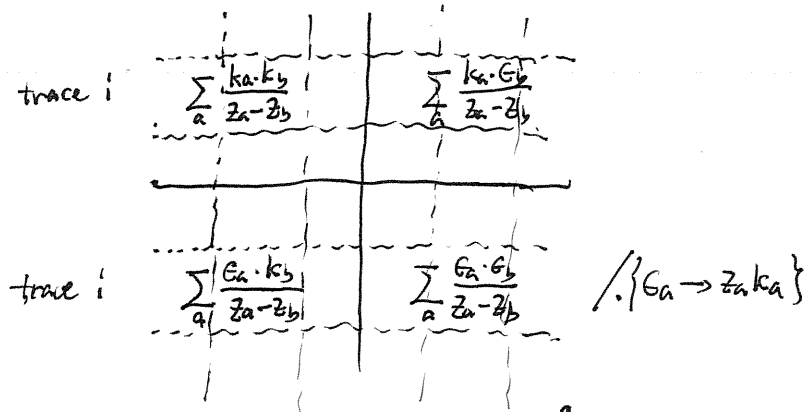 trace i $\sum_a \frac{k_a \cdot k_b}{z_a - z_b}$ $\sum_a \frac{k_a \cdot \epsilon_b}{z_a - z_b}$
trace i $\sum_a \frac{\epsilon_a \cdot k_b}{z_a - z_b}$ $\sum_a \frac{\epsilon_a \cdot \epsilon_b}{z_a - z_b}$ $/. \{\epsilon_a \to z_a k_a\}$